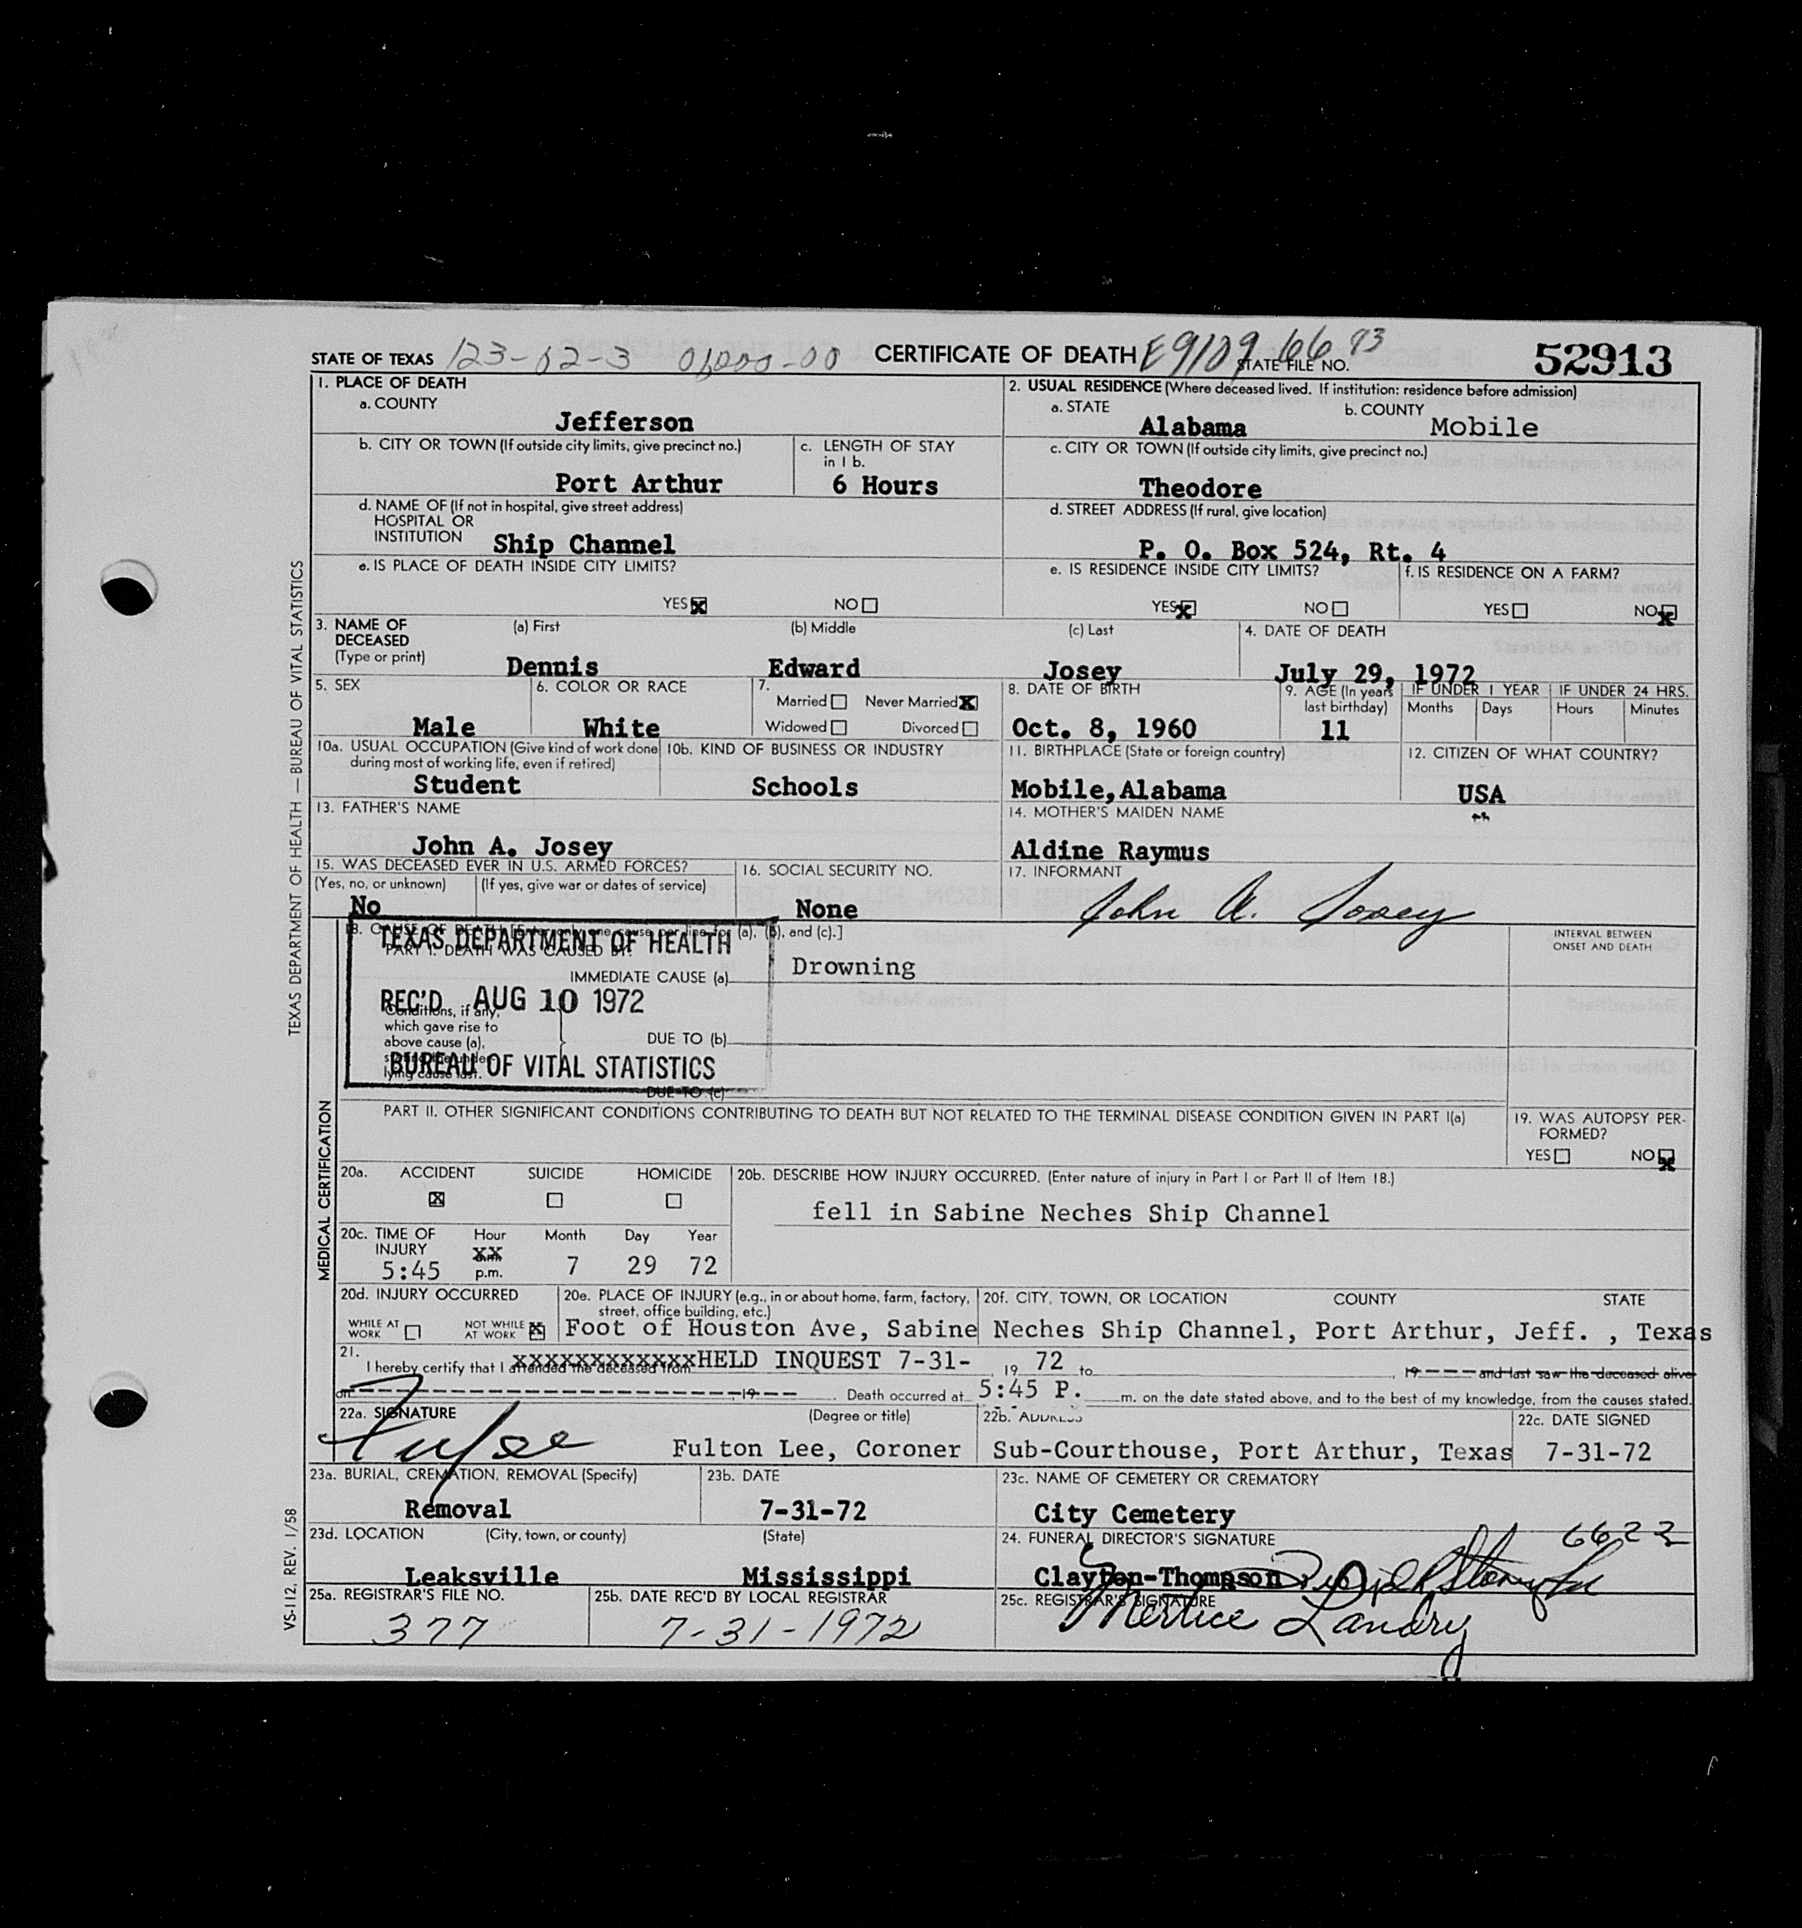 STATE OF TEXAS 123-02-3 CERTIFICATE OF DEATH E9109 6693 STATE FILE NO. 52913
1. PLACE OF DEATH
a. COUNTY
Jefferson
2. USUAL RESIDENCE (Where deceased lived. If institution: residence before admission)
a. STATE b. COUNTY
Alabama Mobile
b. CITY OR TOWN (If outside city limits, give precinct no.) c. LENGTH OF STAY in 1 b.
Port Arthur 6 Hours
c. CITY OR TOWN (If outside city limits, give precinct no.)
Theodore
d. NAME OF (If not in hospital, give street address)
HOSPITAL OR
INSTITUTION Ship Channel
d. STREET ADDRESS (If rural, give location)
P. O. Box 524, Rt. 4
e. IS PLACE OF DEATH INSIDE CITY LIMITS?
YES X NO
e. IS RESIDENCE INSIDE CITY LIMITS? f. IS RESIDENCE ON A FARM?
YES X NO YES NO X
3. NAME OF DECEASED (Type or print) (a) First (b) Middle (c) Last 4. DATE OF DEATH
Dennis Edward Josey July 29, 1972
5. SEX 6. COLOR OR RACE 7. Married Never Married X Widowed Divorced
Male White
8. DATE OF BIRTH 9. AGE (In years last birthday) IF UNDER 1 YEAR IF UNDER 24 HRS.
Months Days Hours Minutes
Oct. 8, 1960 11
10a. USUAL OCCUPATION (Give kind of work done during most of working life, even if retired) 10b. KIND OF BUSINESS OR INDUSTRY
Student Schools
11. BIRTHPLACE (State or foreign country) 12. CITIZEN OF WHAT COUNTRY?
Mobile, Alabama USA
13. FATHER'S NAME 14. MOTHER'S MAIDEN NAME
John A. Josey Aldine Raymus
15. WAS DECEASED EVER IN U.S. ARMED FORCES? 16. SOCIAL SECURITY NO. 17. INFORMANT
(Yes, no, or unknown) (If yes, give war or dates of service)
No None John A. Josey
18. CAUSE OF DEATH [Enter only one cause per line for (a), (b), and (c).]
PART I. DEATH WAS CAUSED BY:
INTERVAL BETWEEN
ONSET AND DEATH
TEXAS DEPARTMENT OF HEALTH
REC'D AUG 10 1972
BUREAU OF VITAL STATISTICS
IMMEDIATE CAUSE (a) Drowning
Conditions, if any,
which gave rise to
above cause (a),
stating the under-
lying cause last.
DUE TO (b)
DUE TO (c)
PART II. OTHER SIGNIFICANT CONDITIONS CONTRIBUTING TO DEATH BUT NOT RELATED TO THE TERMINAL DISEASE CONDITION GIVEN IN PART I(a)
19. WAS AUTOPSY PER-
FORMED?
YES NO X
20a. ACCIDENT SUICIDE HOMICIDE
X
20b. DESCRIBE HOW INJURY OCCURRED. (Enter nature of injury in Part I or Part II of Item 18.)
fell in Sabine Neches Ship Channel
20c. TIME OF INJURY Hour Month Day Year
5:45 p.m. 7 29 72
20d. INJURY OCCURRED 20e. PLACE OF INJURY (e.g., in or about home, farm, factory, street, office building, etc.) 20f. CITY, TOWN, OR LOCATION COUNTY STATE
WHILE AT WORK NOT WHILE AT WORK X
Foot of Houston Ave, Sabine Neches Ship Channel, Port Arthur, Jeff. , Texas
21. I hereby certify that I attended the deceased from HELD INQUEST 7-31- , 19 72 to , 19 and last saw the deceased alive
on , 19 . Death occurred at 5:45 P. m. on the date stated above, and to the best of my knowledge, from the causes stated.
22a. SIGNATURE (Degree or title) 22b. ADDRESS 22c. DATE SIGNED
Fulton Lee, Coroner Sub-Courthouse, Port Arthur, Texas 7-31-72
23a. BURIAL, CREMATION, REMOVAL (Specify) 23b. DATE 23c. NAME OF CEMETERY OR CREMATORY
Removal 7-31-72 City Cemetery
23d. LOCATION (City, town, or county) (State) 24. FUNERAL DIRECTOR'S SIGNATURE 6622
Leaksville Mississippi Clayton-Thompson
25a. REGISTRAR'S FILE NO. 25b. DATE REC'D BY LOCAL REGISTRAR 25c. REGISTRAR'S SIGNATURE
377 7-31-1972 Mertice Landry
TEXAS DEPARTMENT OF HEALTH — BUREAU OF VITAL STATISTICS
MEDICAL CERTIFICATION
VS-112, REV. 1/58